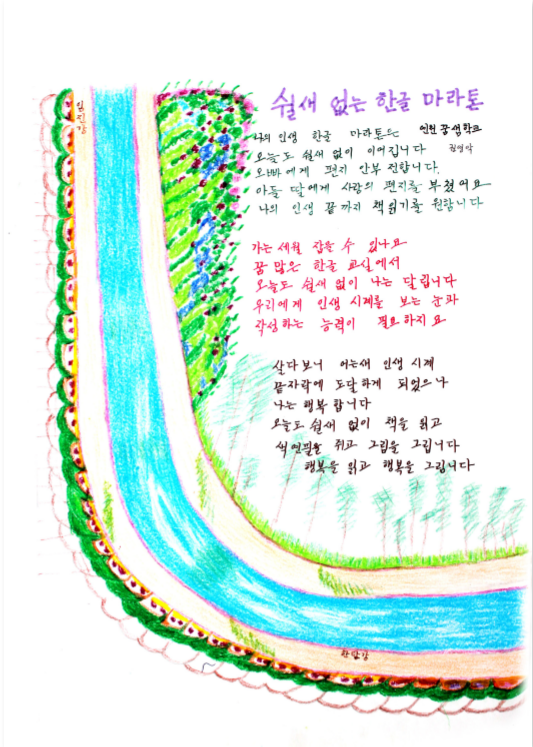 쉴새 없는 한글 마라톤
연천 꿈샘학교
나의 인생 한글 마라톤은
오늘도 쉴새 없이 이어집니다
오빠에게 편지 안부 전합니다.
아들 딸에게 사랑의 편지를 부쳤어요
나의 인생 끝까지 책읽기를 원합니다
가는 세월 잡을 수 있나요
꿈 많은 한글 교실에서
오늘도 쉴새 없이 나는 달립니다
우리에게 인생 시계를 보는 눈과
각성하는 능력이 필요하지요
살다보니 어느새 인생 시계
끝자락에 도달하게 되었으나
나는 행복합니다
오늘도 쉴새 없이 책을 읽고
색연필을 쥐고 그림을 그립니다
행복을 읽고 행복을 그립니다
임진강
한탄강